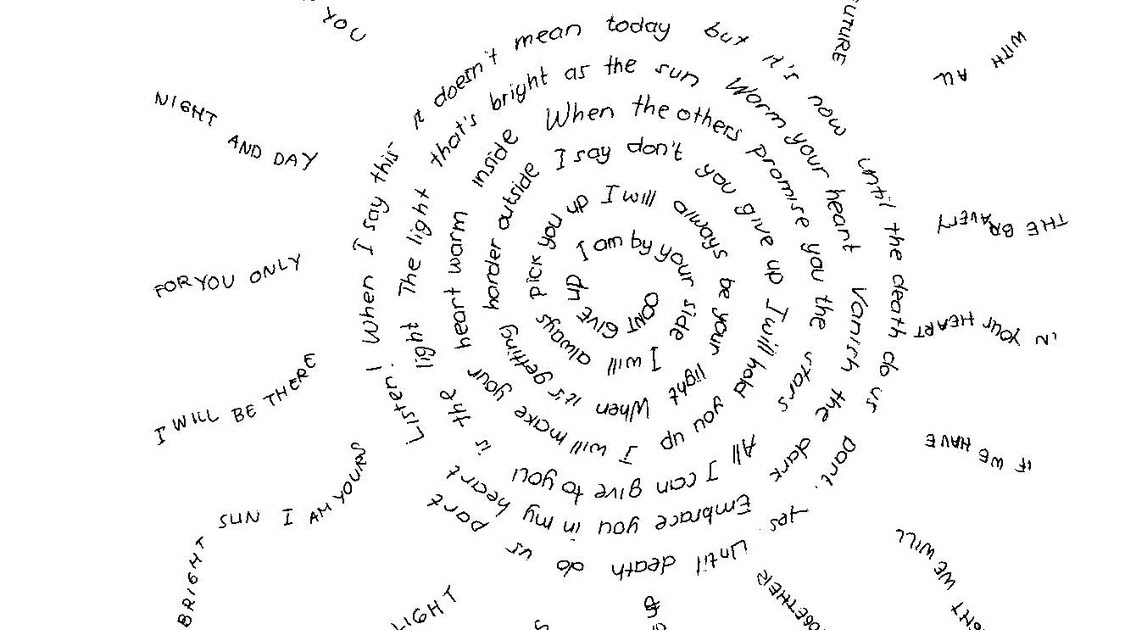 DONT GIVE UP
I am by your side
I will always pick you up
I will always be your light
When it's getting harder outside
I say don't you give up
I will hold you up
I will make your heart warm inside
When the others promise you the stars
All I can give to you is the light
The light that's bright as the sun
Warm your heart
Vanish the dark
Embrace you in my heart
Listen! When I say this it doesn't mean today but it's now until the death do us part. Yes. Until death do us part
YOU
NIGHT AND DAY
FOR YOU ONLY
I WILL BE THERE
SUN I AM YOURS
BRIGHT
WE WILL
IF WE HAVE
IN YOUR HEART
THE BRAVERY
WITH ALL